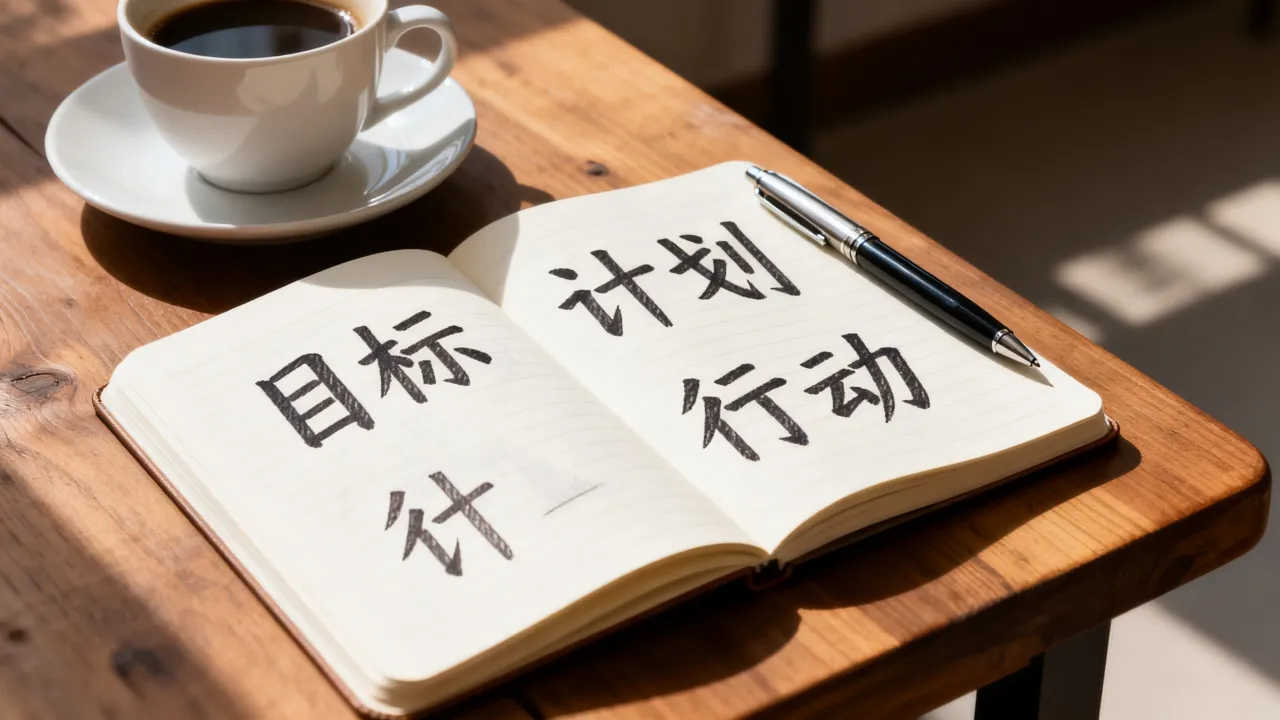 目标
计划
行动